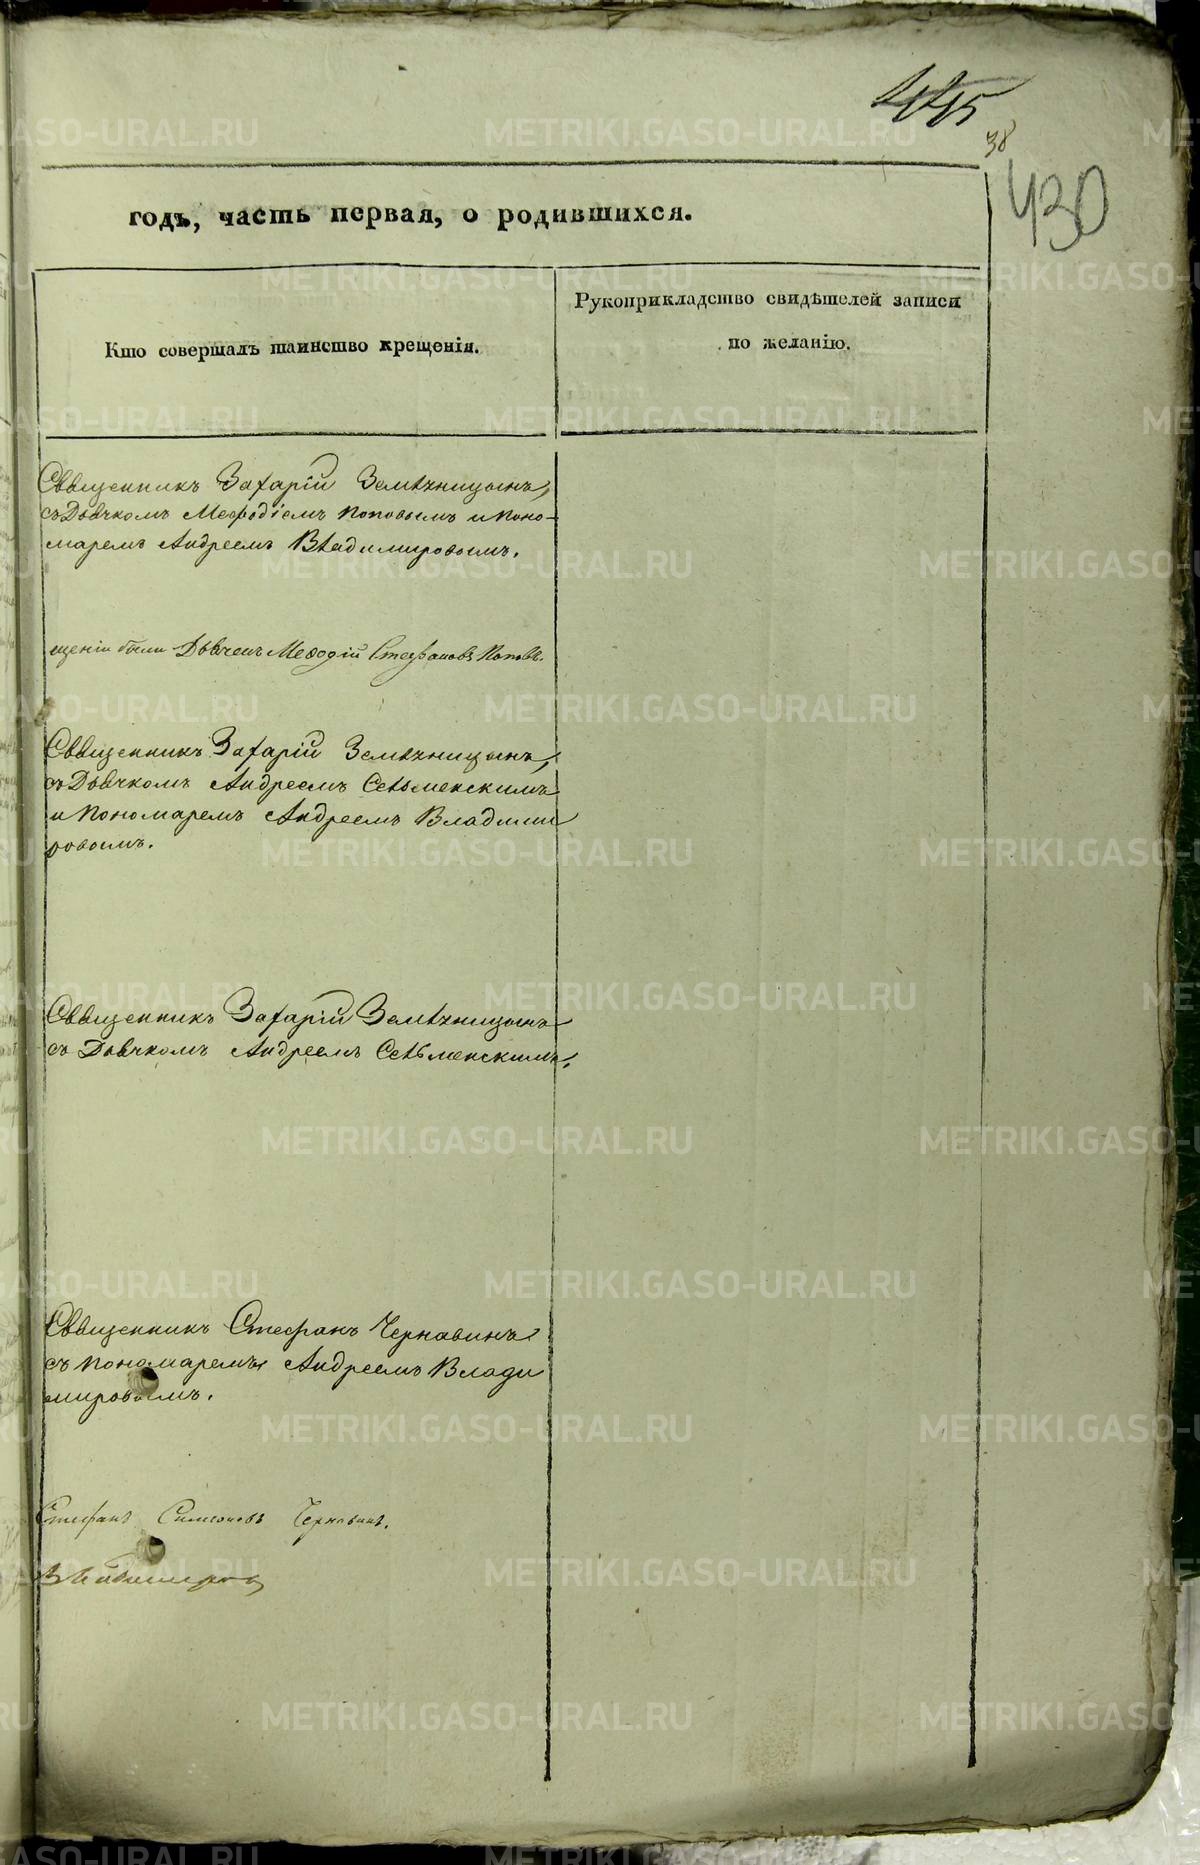 445
38
430
годъ, часть первая, о родившихся.
Кто совершалъ таинство крещенія.
Рукоприкладство свидѣтелей записи
по желанію.
Священникъ Захарій Землянницынъ,
съ Дьячкомъ Меѳодіемъ Поповымъ и Поно-
маремъ Андреемъ Владимировымъ.
щеніи были Дьячекъ Меѳодій Стефановъ Поповъ.
Священникъ Захарій Землянницынъ,
съ Дьячкомъ Андреемъ Сельменскимъ
и Пономаремъ Андреемъ Владими
ровымъ.
Священникъ Захарій Землянницынъ
съ Дьячкомъ Андреемъ Сельменскимъ.
Священникъ Стефанъ Чернавинъ
съ Пономаремъ Андреемъ Влади
мировымъ.
Стефанъ Симеоновъ Чернавинъ.
Владимировъ
METRIKI.GASO-URAL.RU